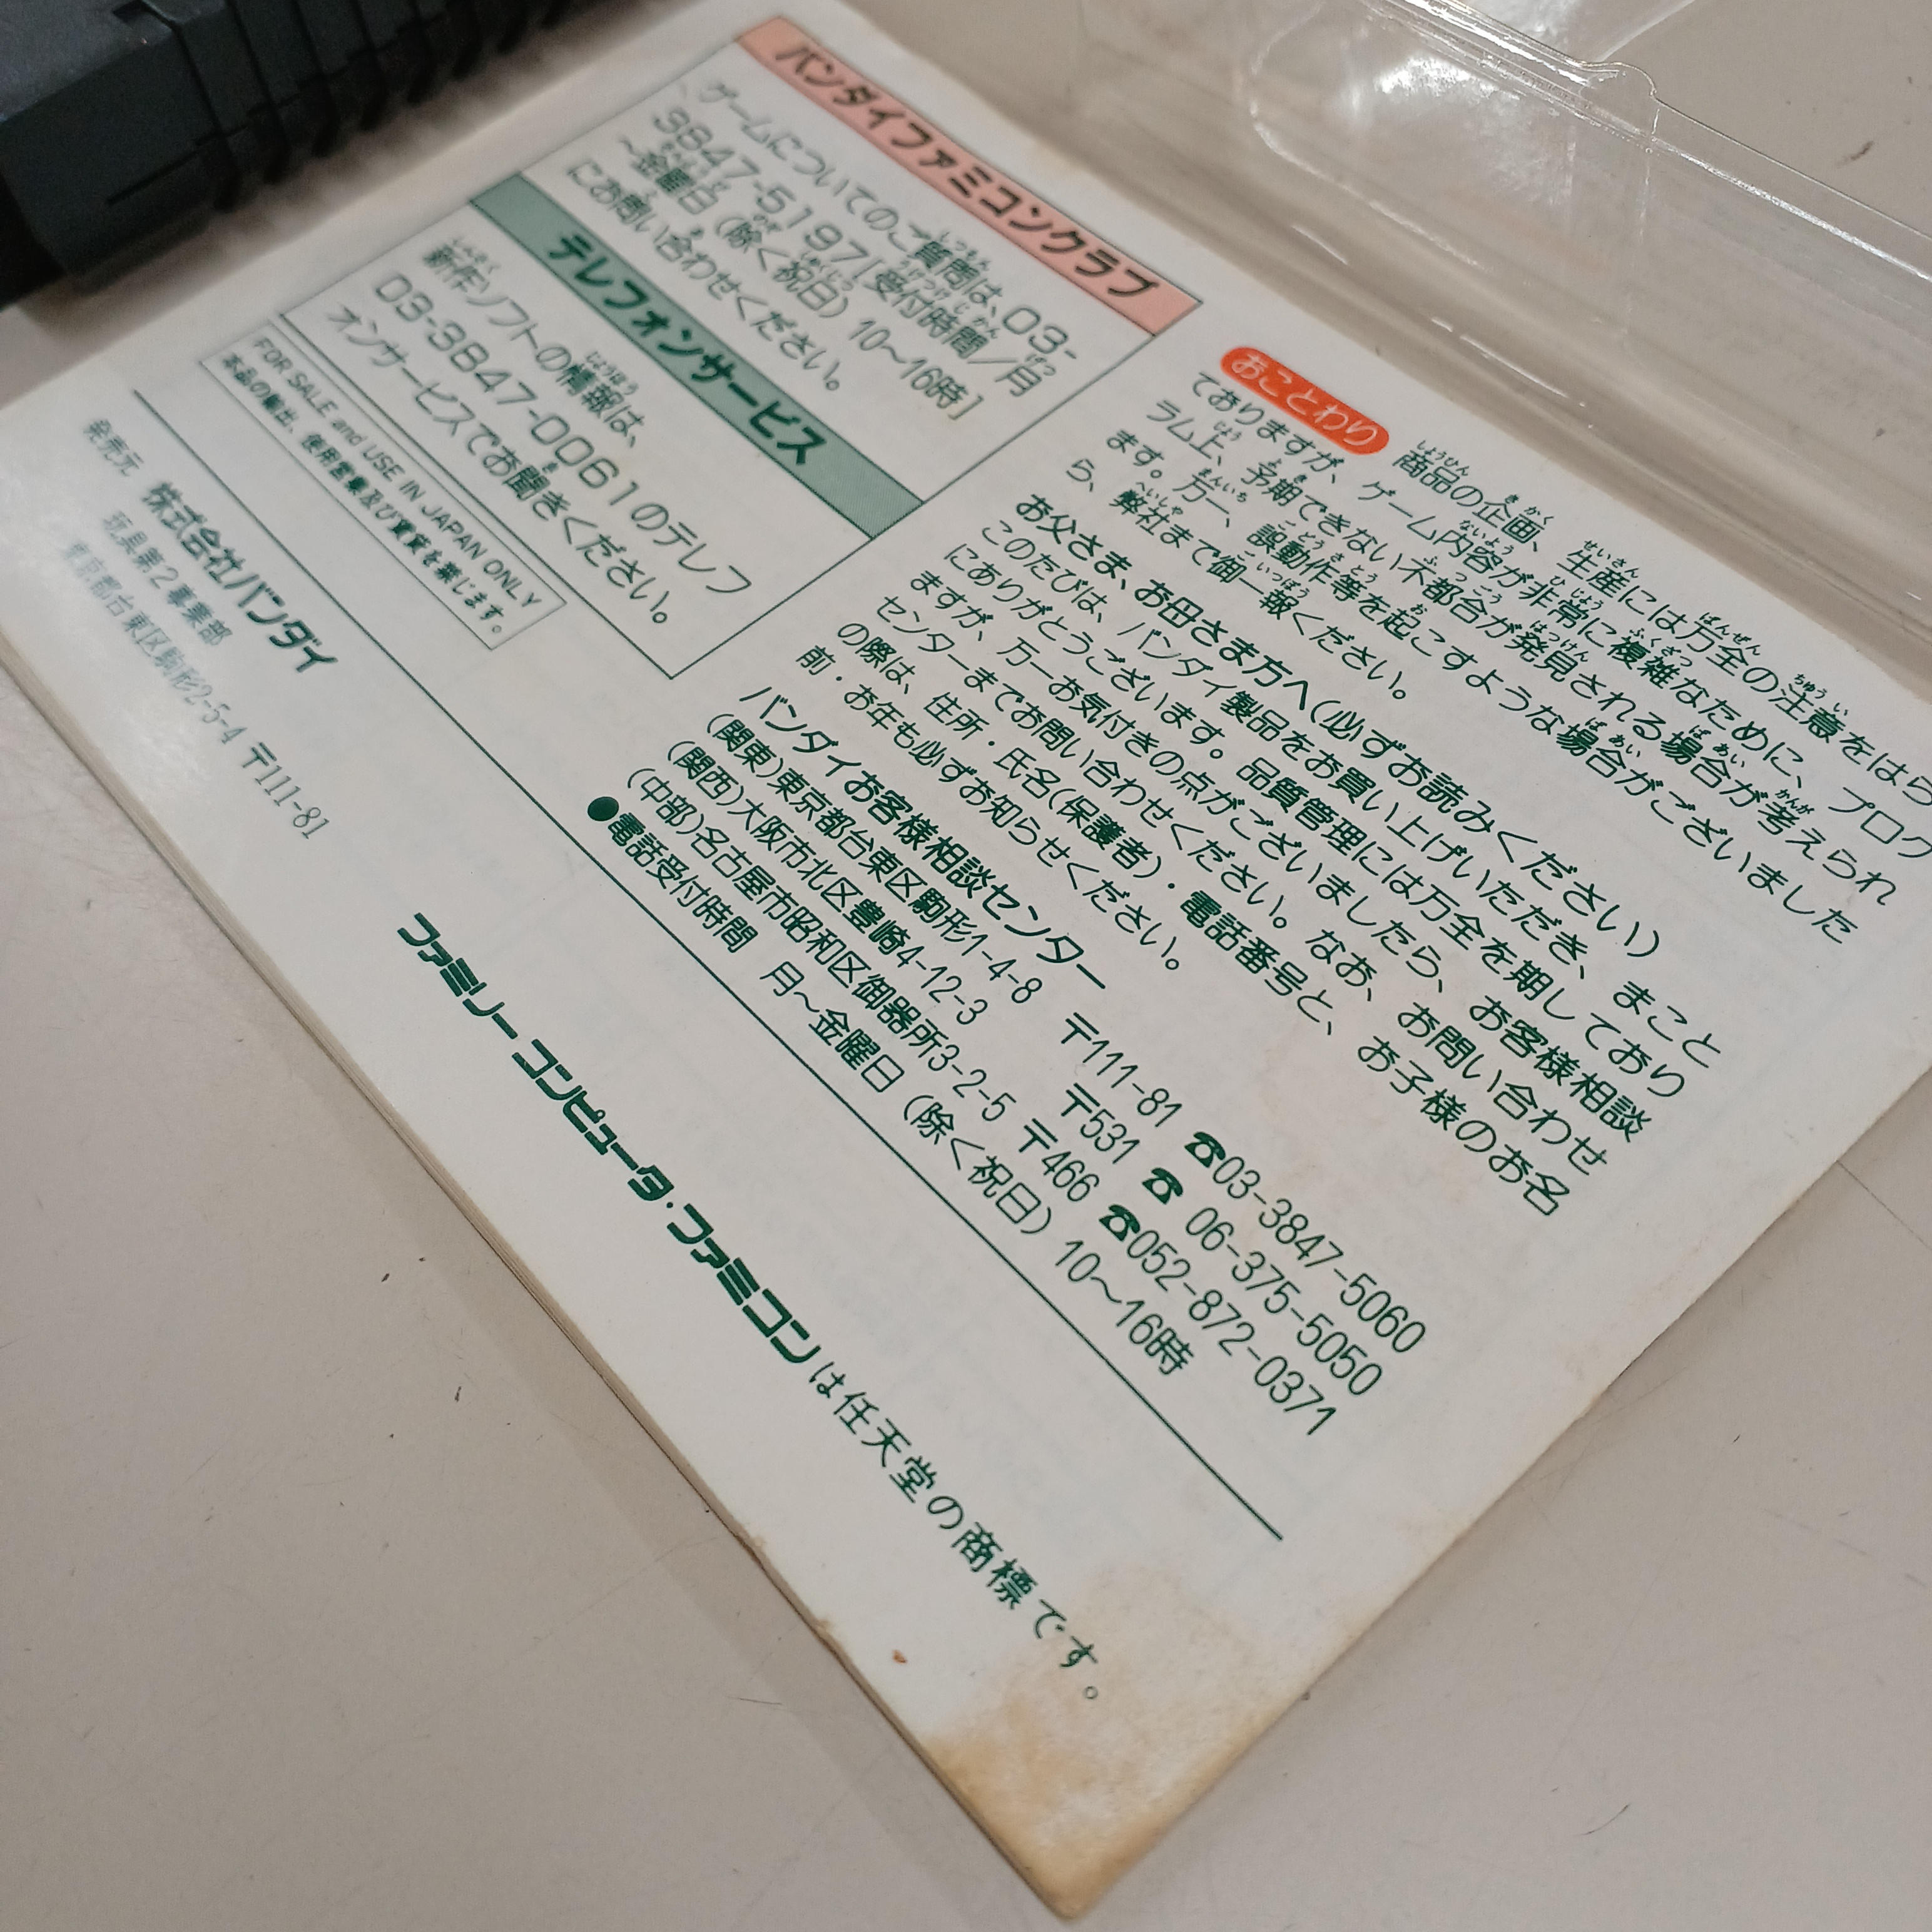 バンダイファミコンクラブ
ゲームについてのご質問は、03-
3847-5197[受付時間/月
~金曜日(除く祝日)10~16時]
にお問い合わせください。
テレフォンサービス
新作ソフトの情報は、
03-3847-0061のテレフ
ォンサービスでお聞きください。
FOR SALE and USE IN JAPAN ONLY
本品の輸出、使用営業及び賃貸を禁じます。
おことわり 商品の企画、生産には万全の注意をはら
ておりますが、ゲーム内容が非常に複雑なために、プログ
ラム上、予期できない不都合が発見される場合が考えられ
ます。万一、誤動作等を起こすような場合がございました
ら、弊社まで御一報ください。
お父さま、お母さま方へ(必ずお読みください)
このたびは、バンダイ製品をお買い上げいただき、まこと
にありがとうございます。品質管理には万全を期しており
ますが、万一お気付きの点がございましたら、お客様相談
センターまでお問い合わせください。なお、お問い合わせ
の際は、住所・氏名(保護者)・電話番号と、お子様のお名
前・お年も必ずお知らせください。
バンダイお客様相談センター
(関東)東京都台東区駒形1-4-8 〒111-81 ☎03-3847-5060
(関西)大阪市北区豊崎4-12-3 〒531 ☎ 06-375-5050
(中部)名古屋市昭和区御器所3-2-5 〒466 ☎052-872-0371
●電話受付時間 月~金曜日(除く祝日)10~16時
発売元 株式会社バンダイ
玩具第2事業部
東京都台東区駒形2-5-4 〒111-81
ファミリーコンピュータ・ファミコンは任天堂の商標です。